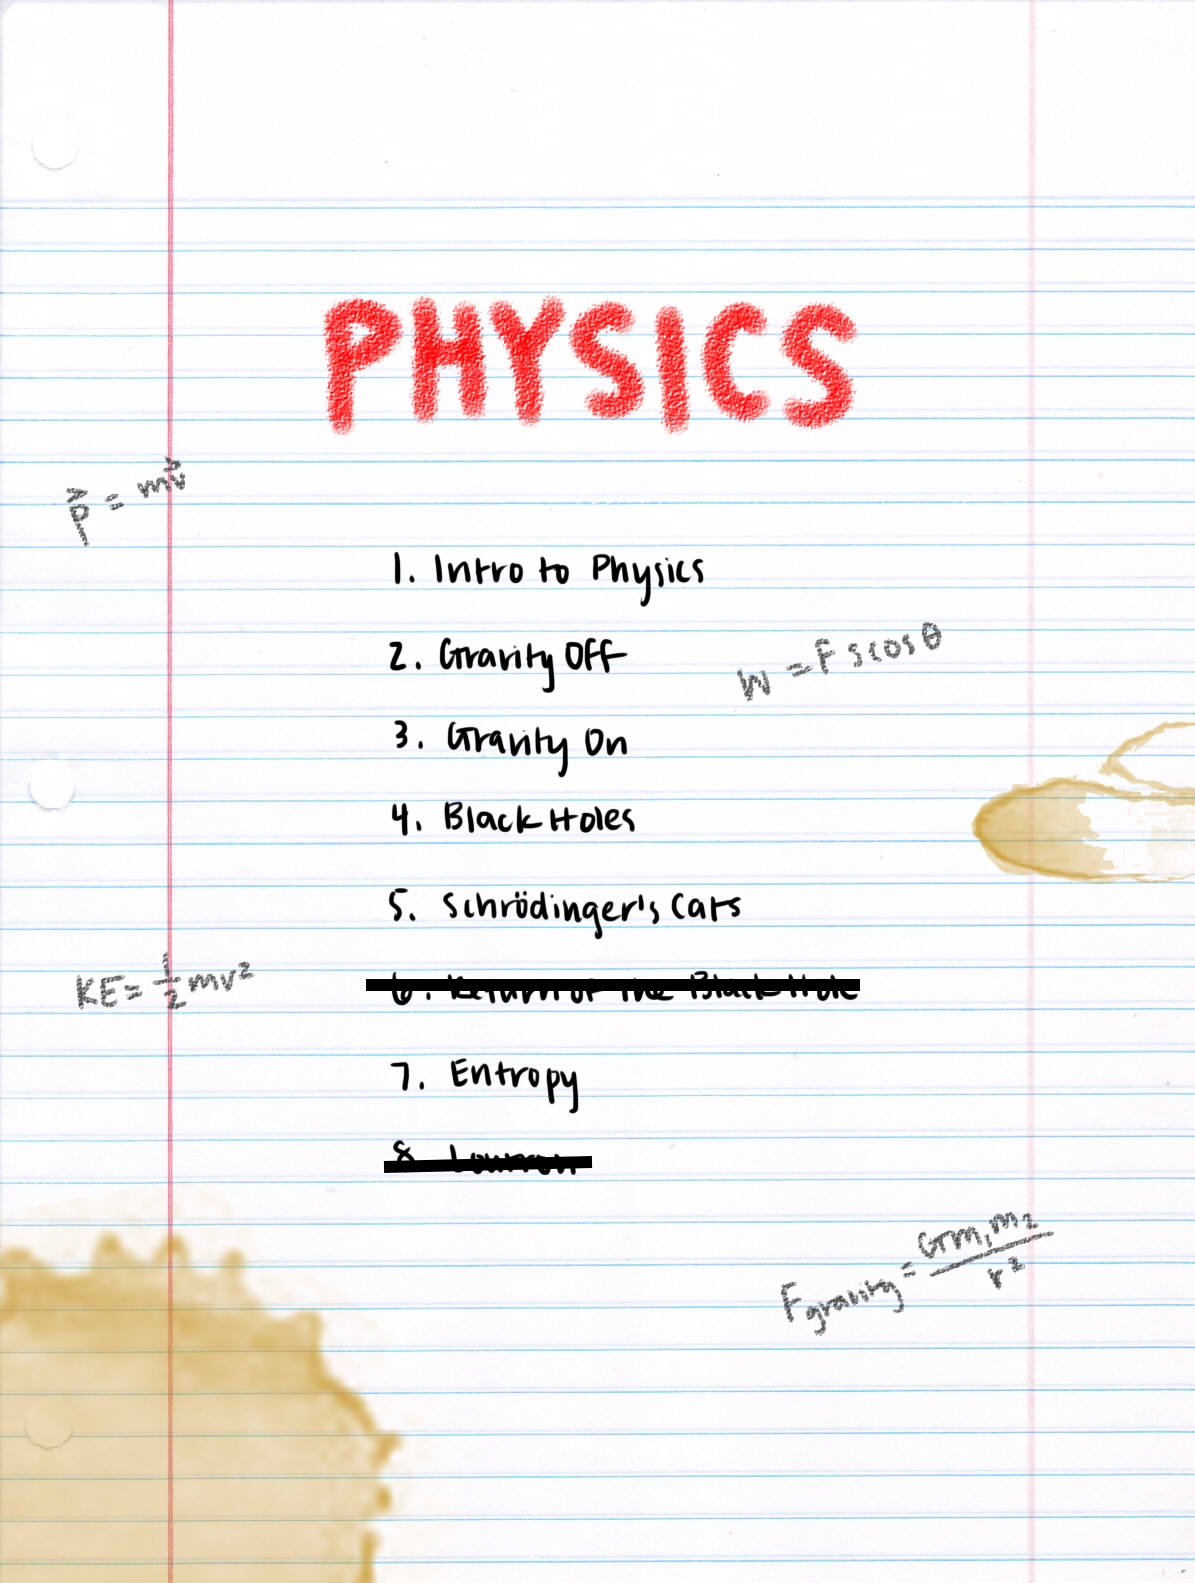 PHYSICS
p⃗ = mv⃗
1. Intro to Physics
2. Gravity Off
W = F s cos θ
3. Gravity On
4. Black Holes
5. Schrödinger's Cats
KE = 1/2 mv²
6. Return of the Black Hole
7. Entropy
8
F gravity = Gm₁m₂/r²